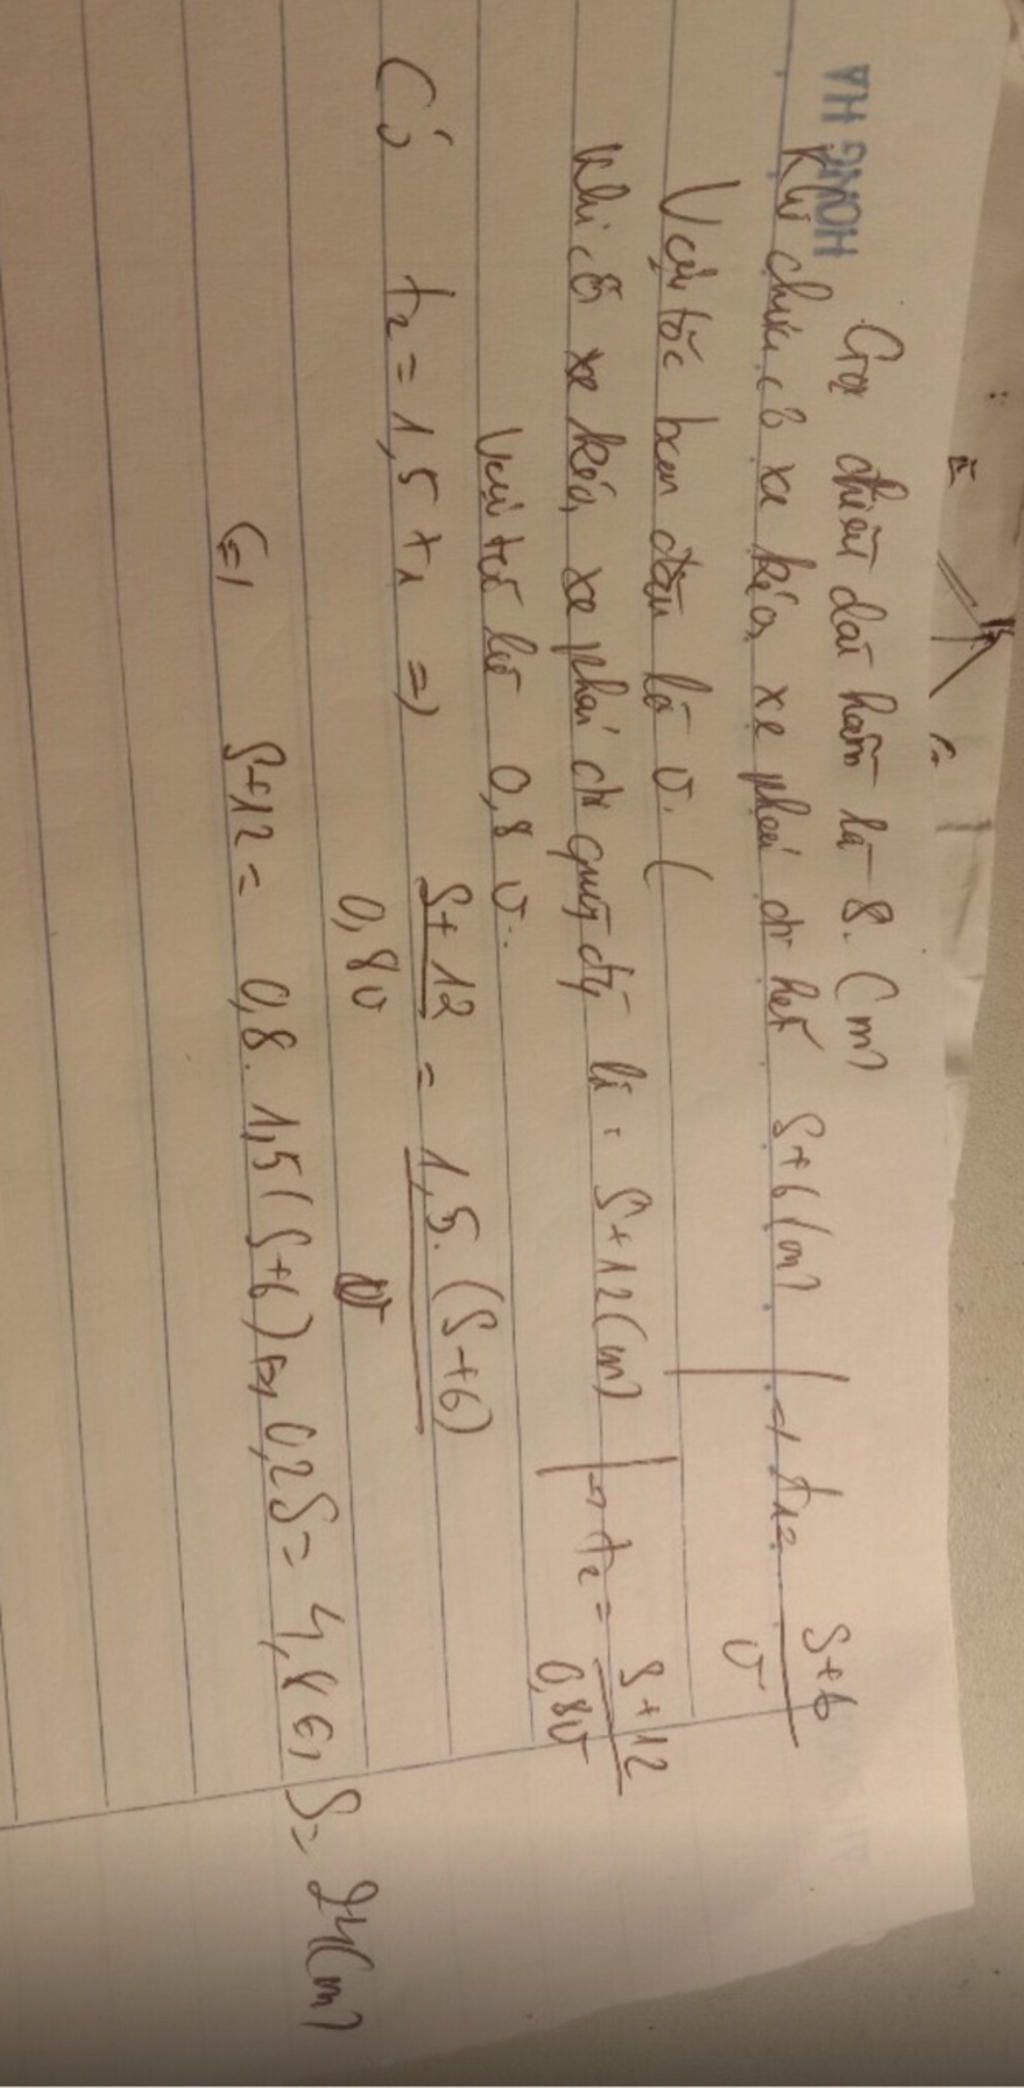 HỒNG HÀ
Gọi chiều dài hầm là S. (m)
Khi chưa có xe kéo, xe phải đi hết S+6(m) → t₁ = S+6 / v
Vận tốc ban đầu là v. (
Khi có xe kéo, xe phải đi quãng đg là: S+12(m) → t₂ = S+12 / 0,8v
Vận tốc là 0,8 v.
Có t₂ = 1,5 t₁ => S+12 / 0,8v = 1,5.(S+6) / v
<=> S+12 = 0,8. 1,5(S+6) <=> 0,2S = 4,8 <=> S = 24(m)